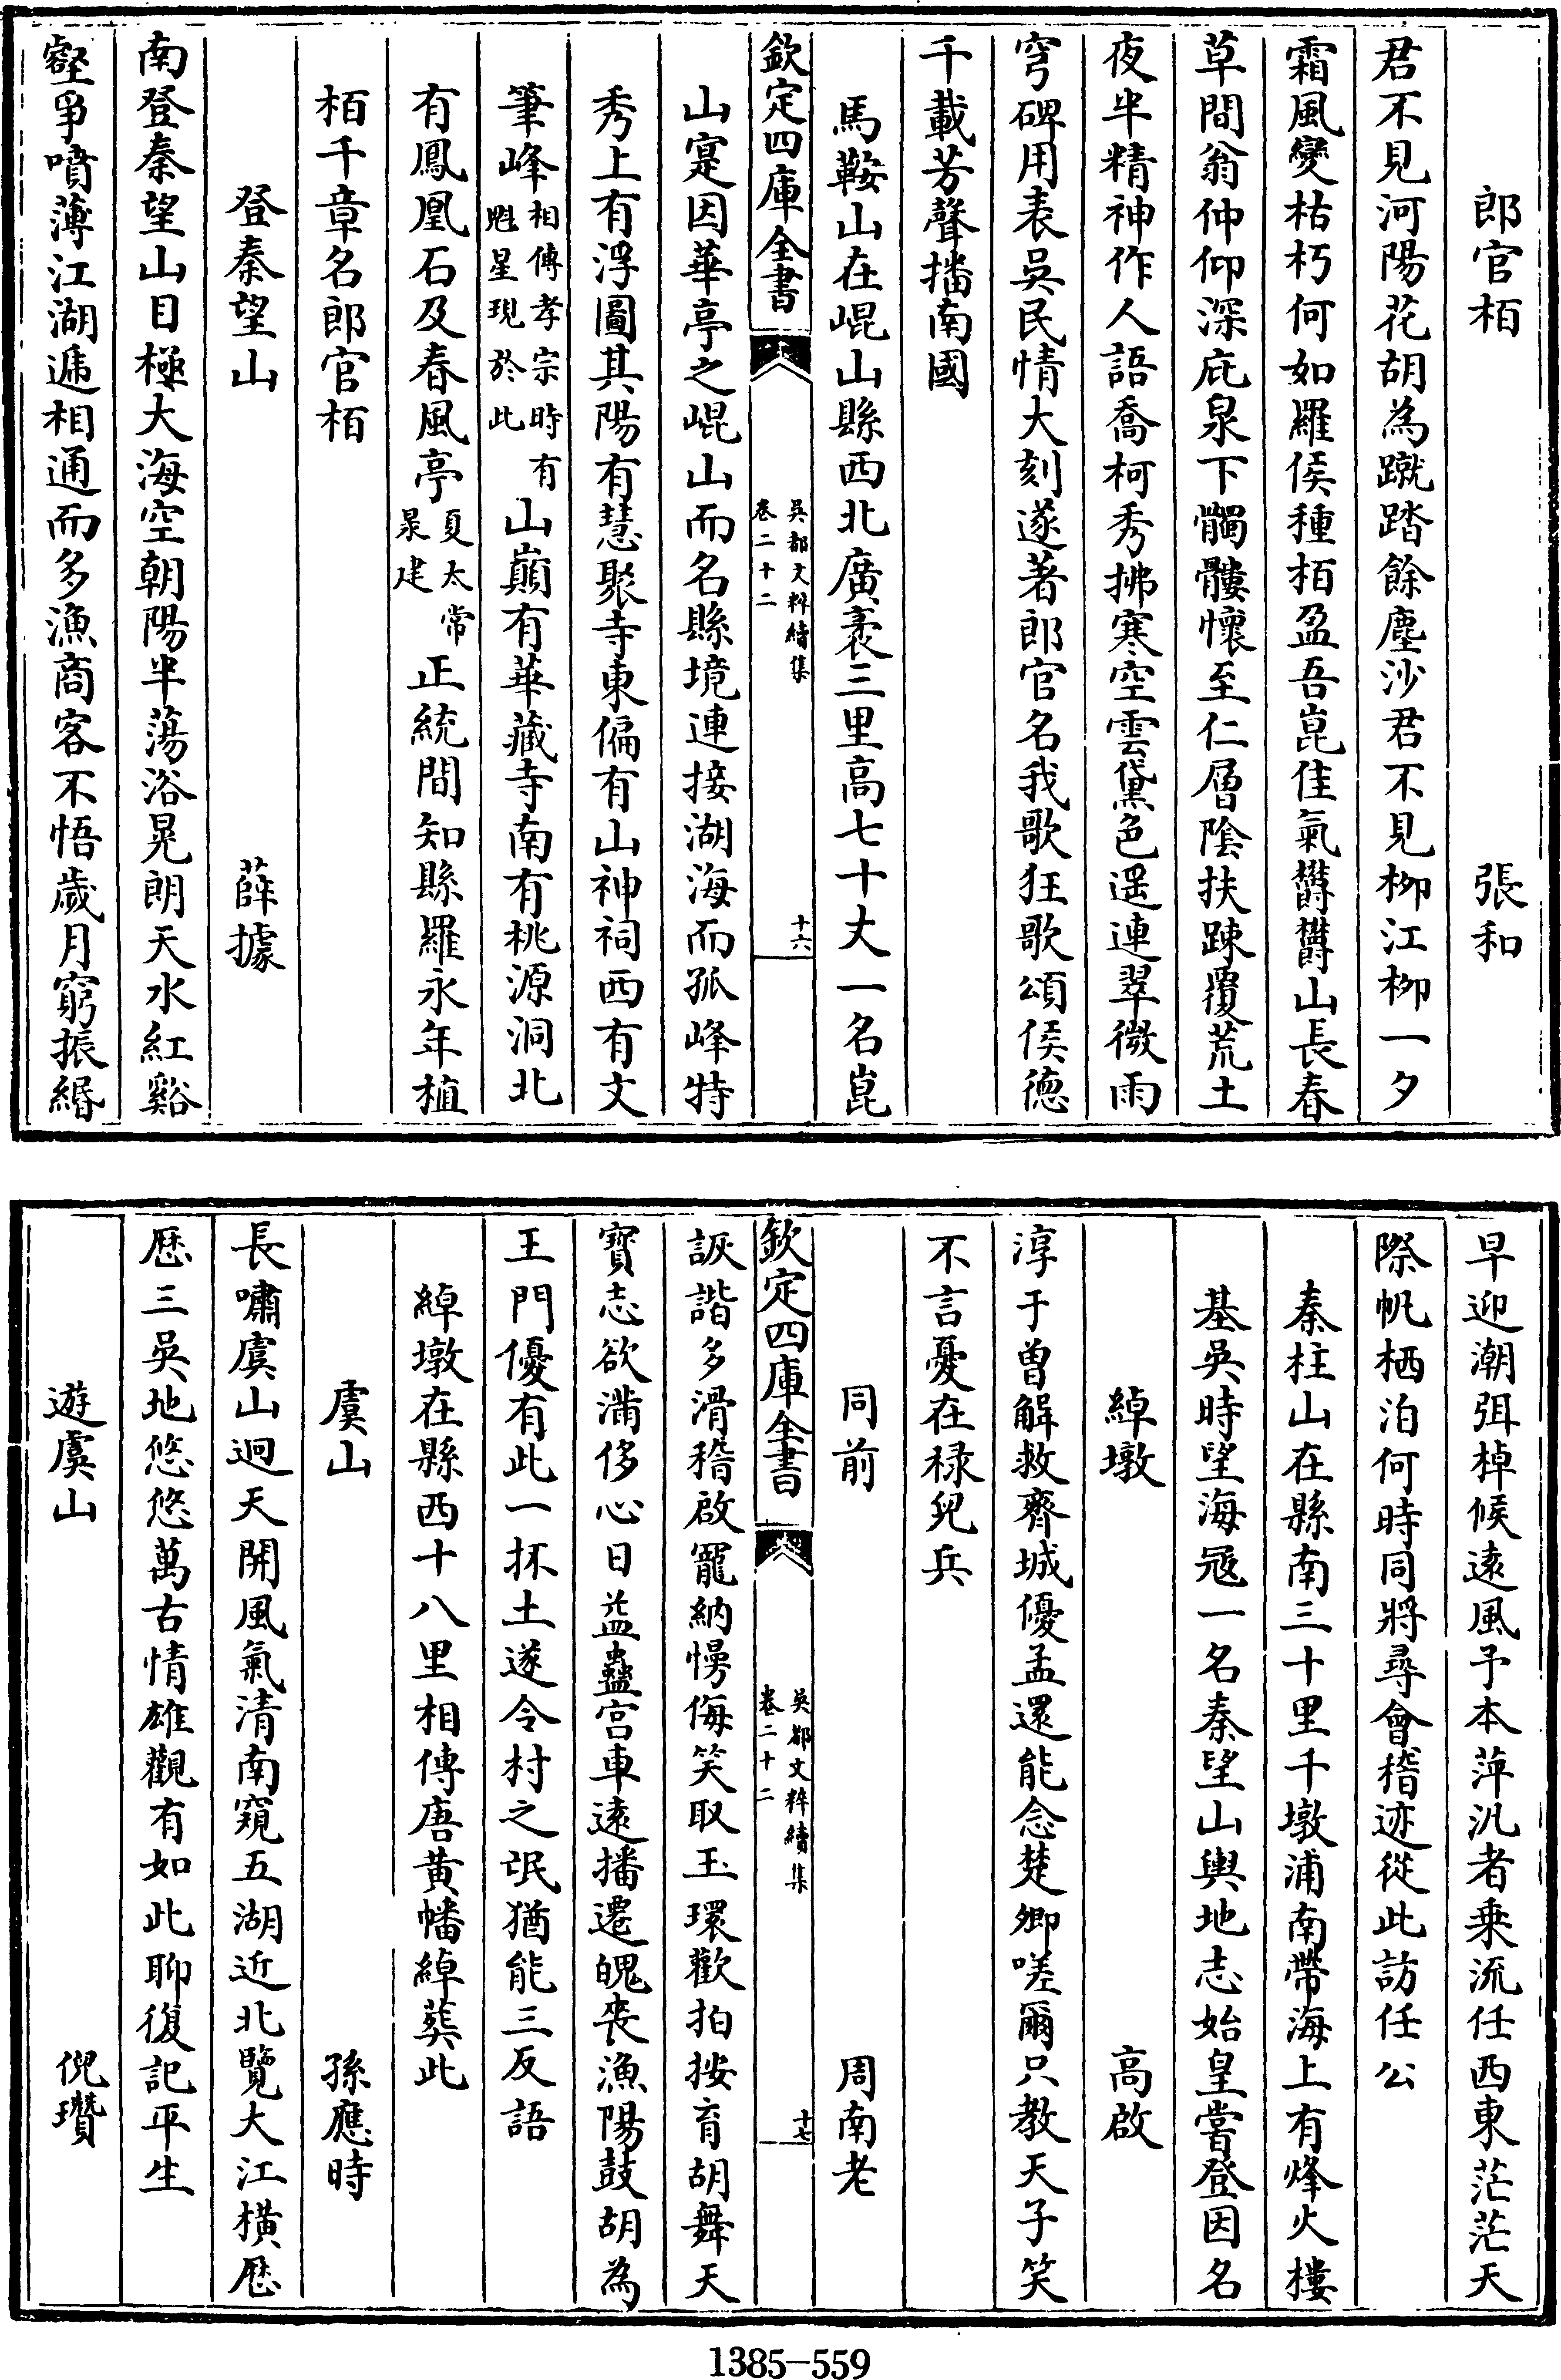 郎官栢　張和
君不見河陽花胡為蹴踏餘塵沙君不見柳江柳一夕
霜風變枯朽何如羅侯種栢盈吾崑佳氣欝欝山長春
草間翁仲仰深庇泉下髑髏懷至仁層陰扶踈覆荒土
夜半精神作人語喬柯秀拂寒空雲黛色遥連翠微雨
穹碑用表吳民情大刻遂著郎官名我歌狂歌頌侯徳
千載芳聲播南國
馬鞍山在崐山縣西北廣袤三里高七十丈一名崑
欽定四庫全書
吳都文粹續集
卷二十二
十六
山寔因華亭之崐山而名縣境連接湖海而孤峰特
秀上有浮圖其陽有慧聚寺東偏有山神祠西有文
筆峰相傳孝宗時有魁星現於此山巔有華藏寺南有桃源洞北
有鳳凰石及春風亭夏太常泉建正統間知縣羅永年植
栢千章名郎官栢
登秦望山　薛據
南登秦望山目極大海空朝陽半蕩浴晃朗天水紅谿
壑爭噴薄江湖遞相通而多漁商客不悟歲月窮振緡
早迎潮弭棹候遠風予本萍汎者乗流任西東茫茫天
際帆栖泊何時同將尋會稽迹從此訪任公
秦柱山在縣南三十里千墩浦南帶海上有烽火樓
基吳時望海冦一名秦望山輿地志始皇嘗登因名
綽墩　高啟
淳于曽解救齊城優孟還能念楚卿嗟爾只教天子笑
不言憂在禄兒兵
同前　周南老
欽定四庫全書
吳都文粹續集
卷二十二
十七
詼諧多滑稽啟寵納慢侮笑取玉環歡拍按育胡舞天
寳志欲滿侈心日益蠱宫車遠播遷魄丧漁陽鼓胡為
王門優有此一抔土遂令村之氓猶能三反語
綽墩在縣西十八里相傳唐黄幡綽葬此
虞山　孫應時
長嘯虞山迥天開風氣清南窺五湖近北覽大江横歴
歴三吳地悠悠萬古情雄觀有如此聊復記平生
遊虞山　倪瓚
1385-559